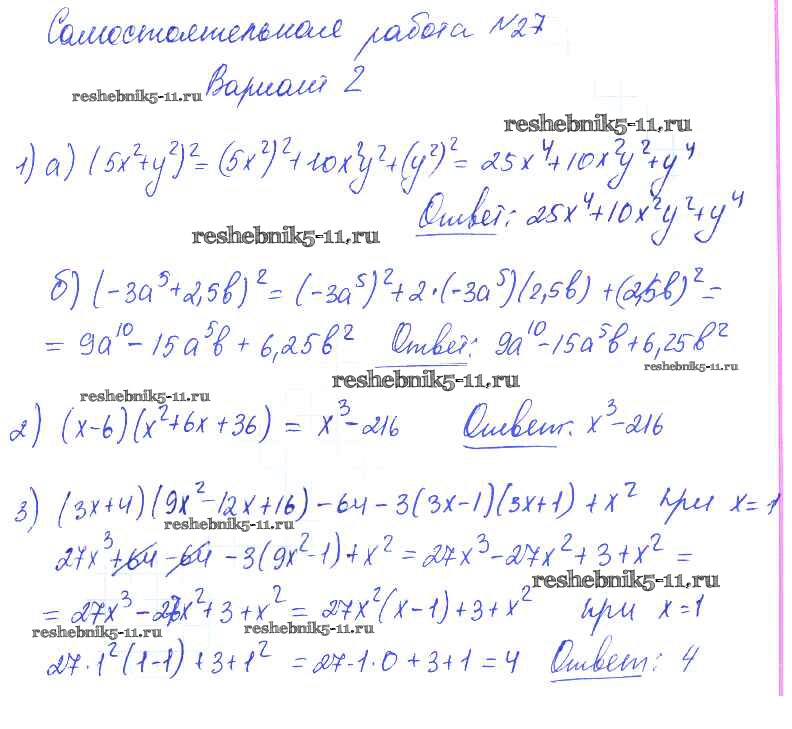 Самостоятельная работа №27
Вариант 2
reshebnik5-11.ru
reshebnik5-11.ru
1) а) (5x²+y²)² = (5x²)²+10x²y²+(y²)² = 25x⁴+10x²y²+y⁴
Ответ: 25x⁴+10x²y²+y⁴
reshebnik5-11.ru
б) (-3a⁵+2,5b)² = (-3a⁵)²+2·(-3a⁵)(2,5b)+(2,5b)² =
= 9a¹⁰-15a⁵b+6,25b² Ответ: 9a¹⁰-15a⁵b+6,25b²
reshebnik5-11.ru
reshebnik5-11.ru
reshebnik5-11.ru
2) (x-6)(x²+6x+36) = x³-216 Ответ: x³-216
3) (3x+4)(9x²-12x+16)-64-3(3x-1)(3x+1)+x² при x=1
reshebnik5-11.ru
27x³+64-64-3(9x²-1)+x² = 27x³-27x²+3+x² =
reshebnik5-11.ru
= 27x³-27x²+3+x² = 27x²(x-1)+3+x² при x=1
reshebnik5-11.ru
reshebnik5-11.ru
27·1²(1-1)+3+1² = 27·1·0+3+1=4 Ответ: 4